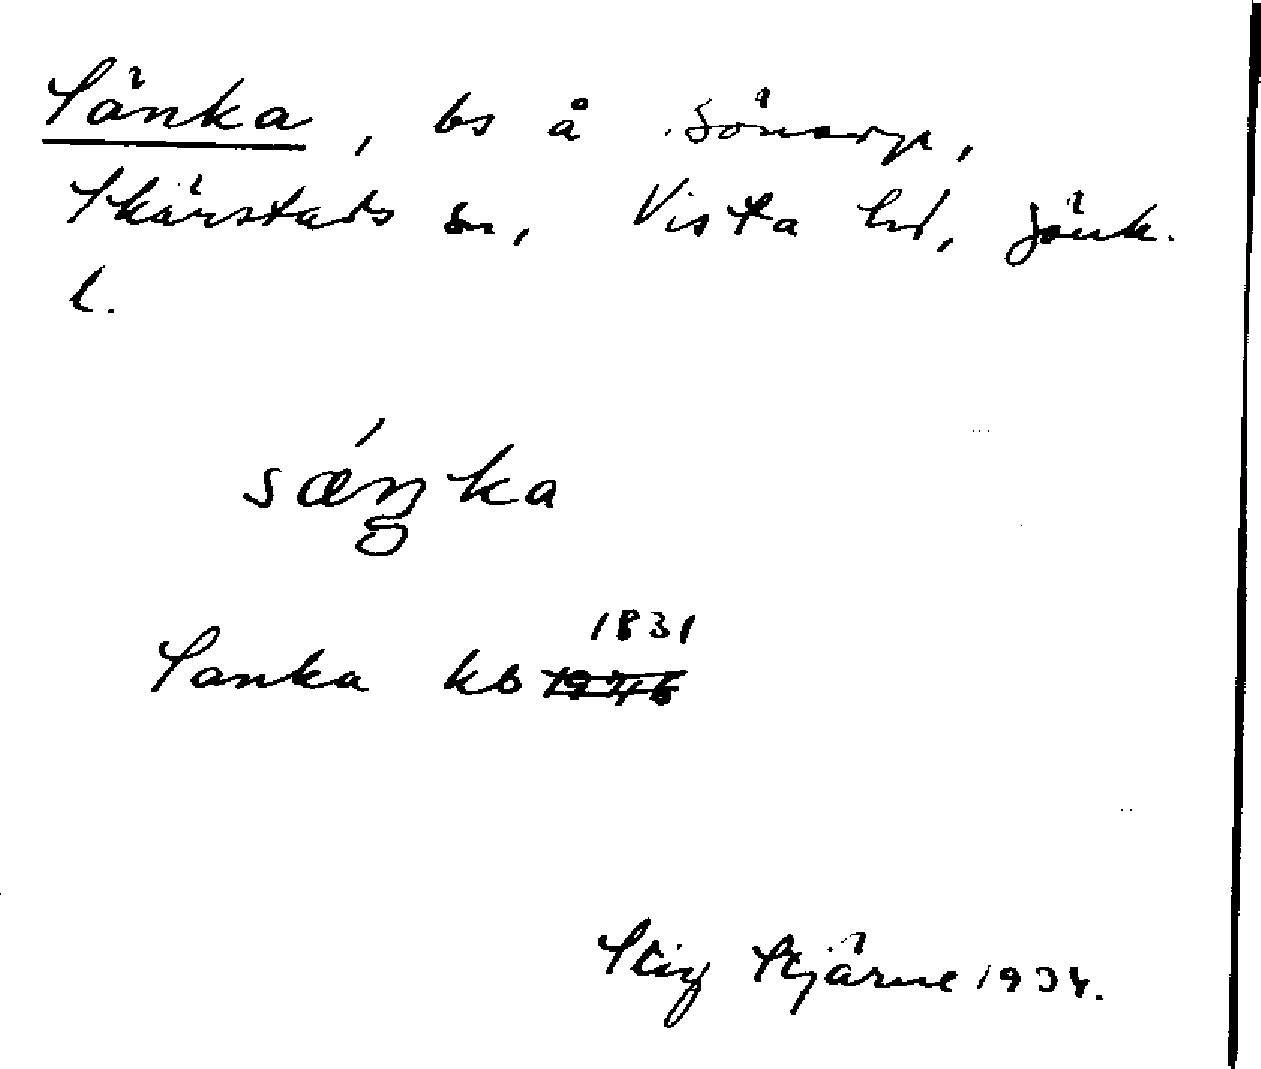 Sänka, bs å Sönarp,
Skärstads sn, Vista hd, Jönk.
l.
sǽŋka
Sanka kb 1831
Stig Stjärne 1934.